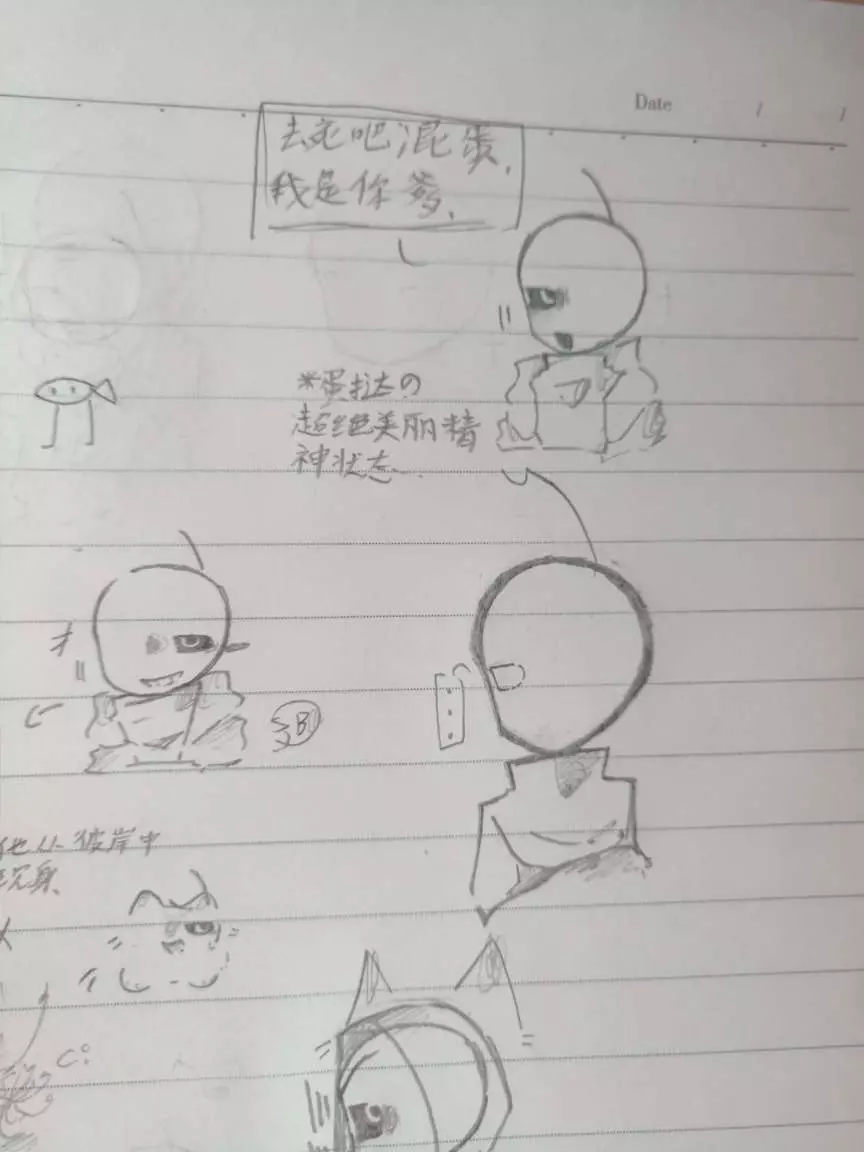 Date / /
去死吧混蛋,
我是你爹,
*蛋挞の
超绝美丽精
神状态…
B
他从彼岸中
现身
C: